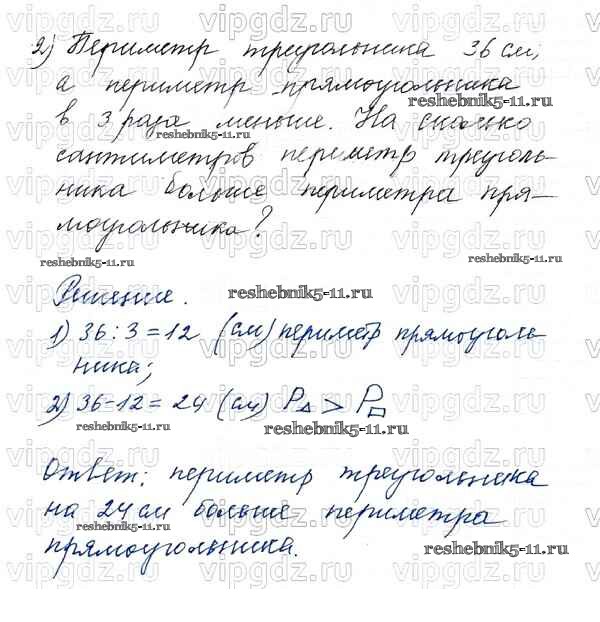 2) Периметр треугольника 36 см,
а периметр прямоугольника
в 3 раза меньше. На сколько
сантиметров периметр треуголь-
ника больше периметра пря-
моугольника?
Решение.
1) 36 : 3 = 12 (см) периметр прямоуголь-
ника;
2) 36 - 12 = 24 (см) P△ > P□
Ответ: периметр треугольника
на 24 см больше периметра
прямоугольника.
vipgdz.ru
reshebnik5-11.ru